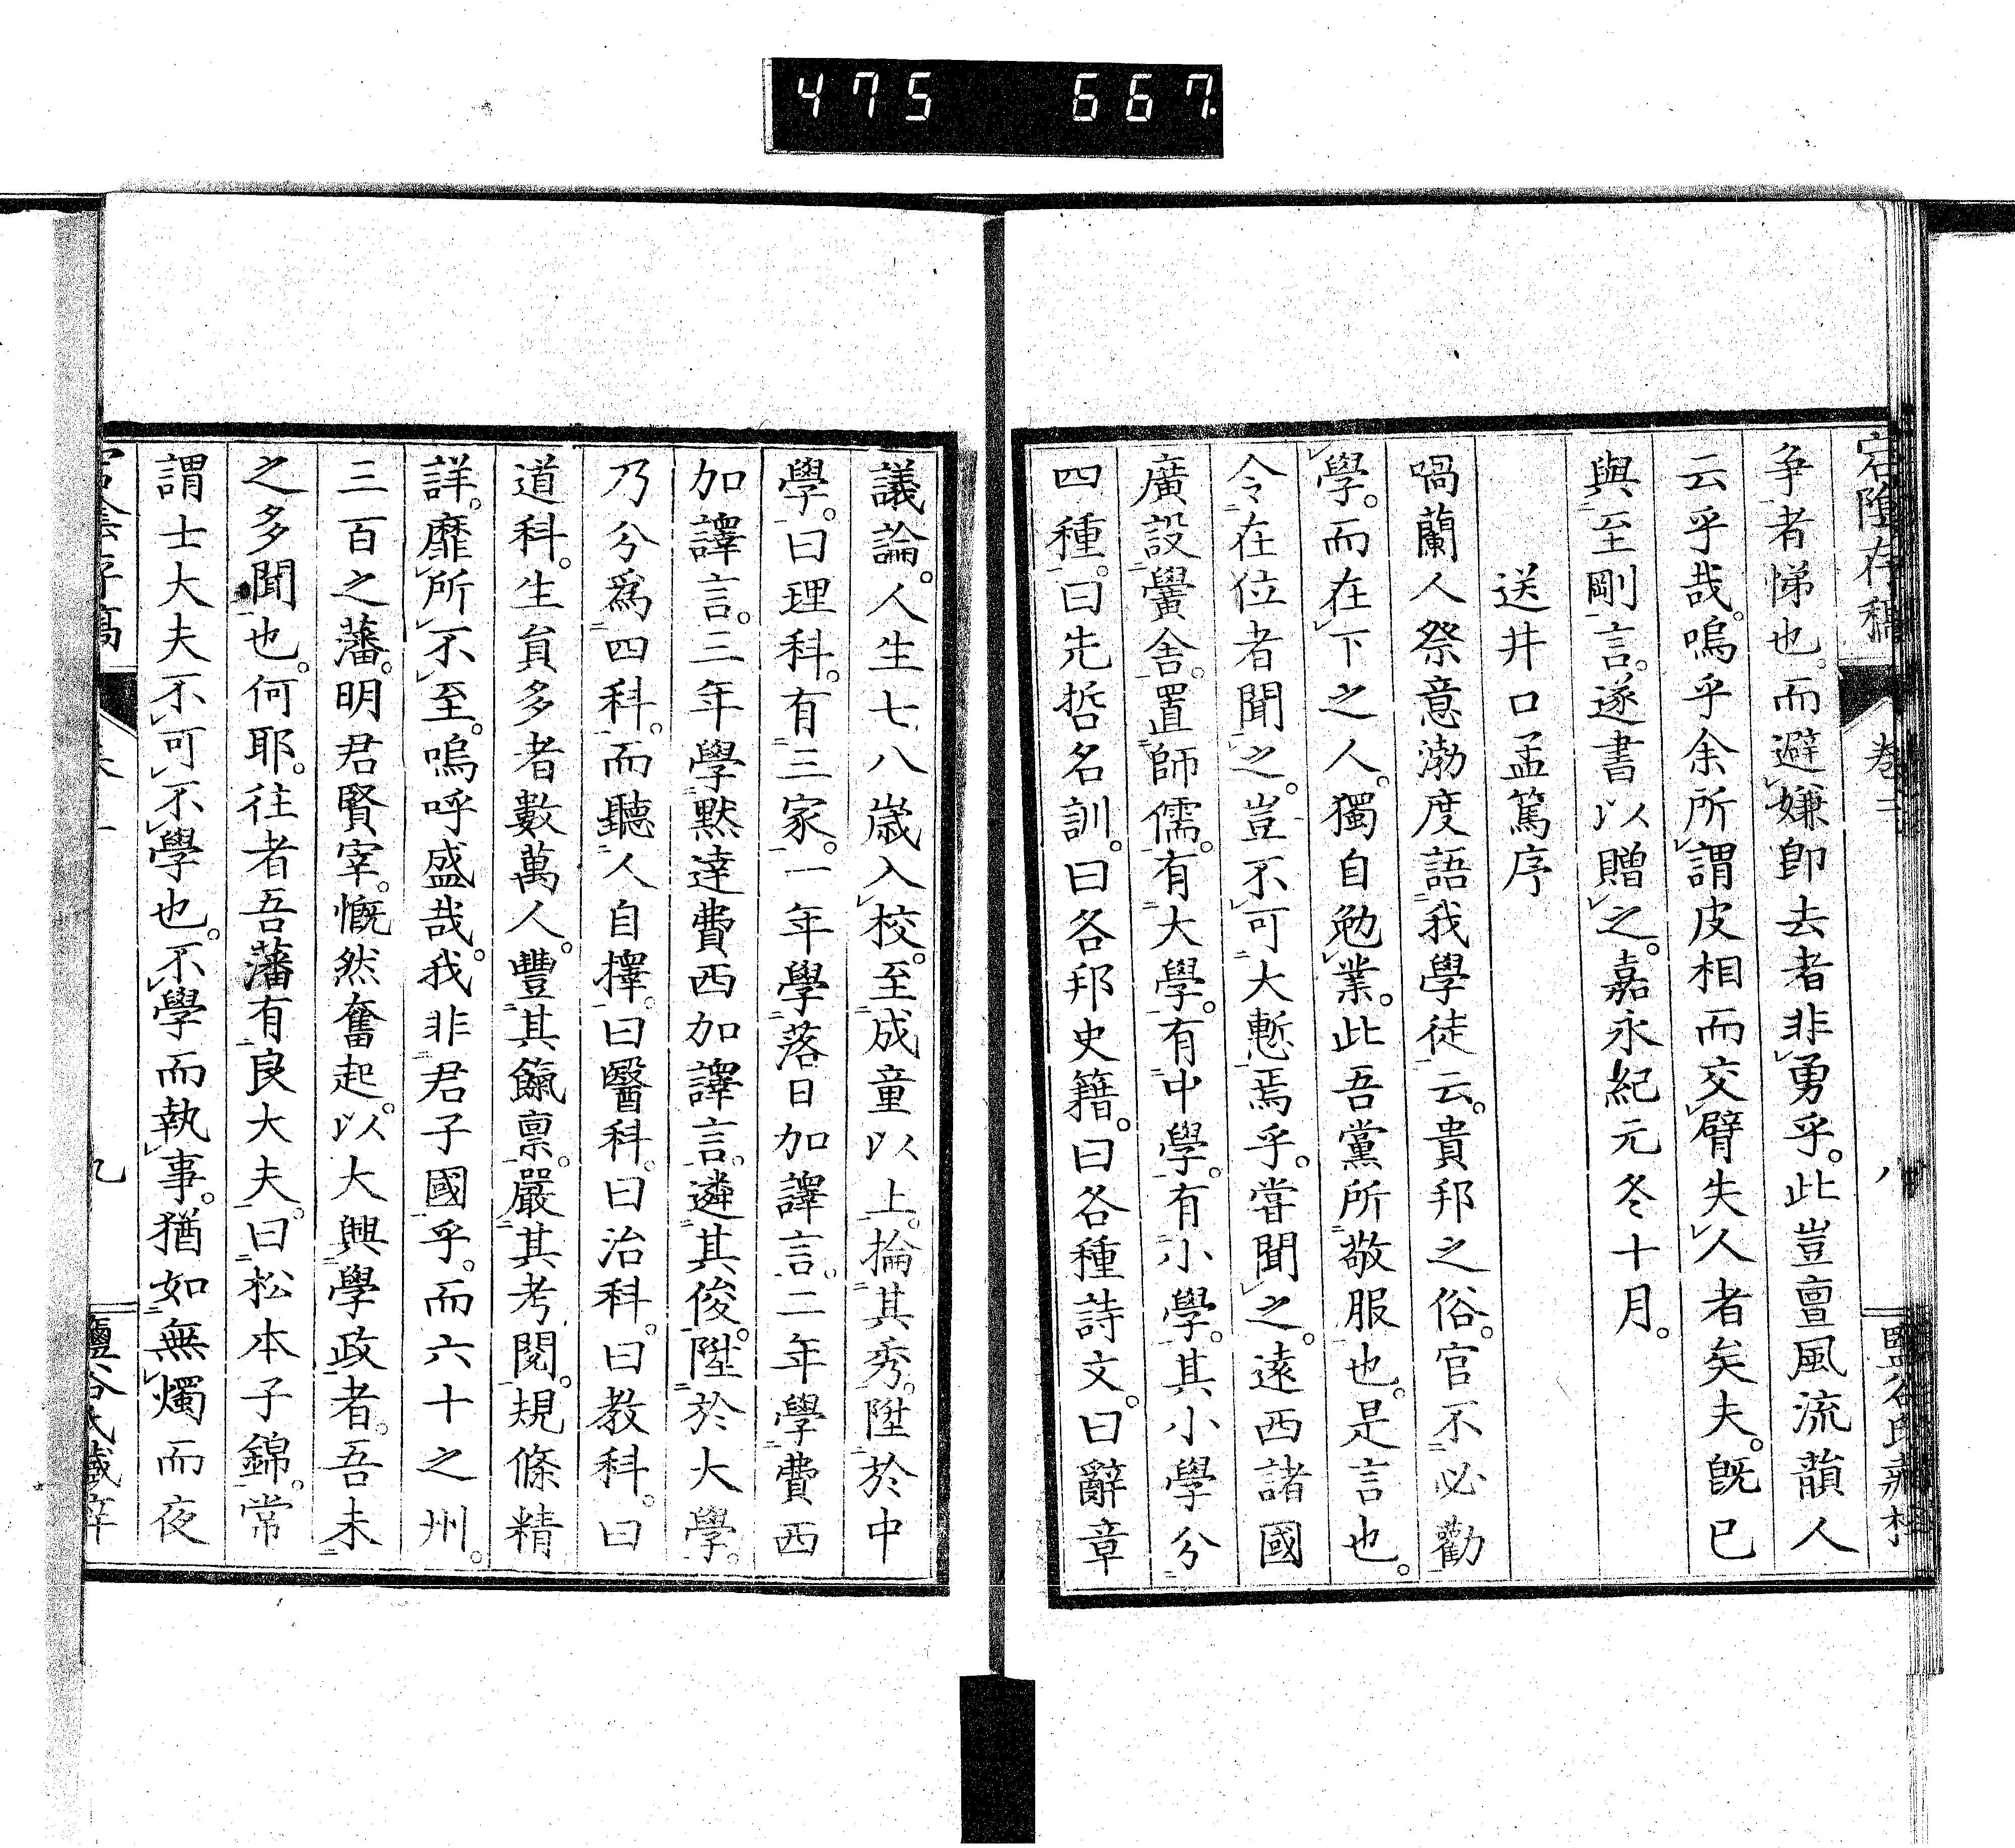 475 667
宕陰存稿 卷二 八 鹽谷氏藏梓
争者悌也。而避嫌卽去者非勇乎。此豈亶風流韻人
云乎哉。嗚乎余所謂皮相而交臂失人者矣夫。旣已
與至剛言。遂書以贈之。嘉永紀元冬十月。
送井口孟篤序
喎蘭人祭意渤度語我學徒云。貴邦之俗。官不必勸
學。而在下之人。獨自勉業。此吾黨所敬服也。是言也。
令在位者聞之。豈不可大慙焉乎。嘗聞之。遠西諸國
廣設黌舍。置師儒。有大學。有中學。有小學。其小學分
四種。曰先哲名訓。曰各邦史籍。曰各種詩文。曰辭章
議論。人生七八歲入校。至成童以上。掄其秀。陞於中
學。曰理科。有三家。一年學落日加譯言。二年學費西
加譯言。三年學默達費西加譯言。遴其俊。陞於大學。
乃分爲四科。而聽人自擇。曰醫科。曰治科。曰教科。曰
道科。生員多者數萬人。豐其餼禀。嚴其考閱。規條精
詳。靡所不至。嗚呼盛哉。我非君子國乎。而六十之州。
三百之藩。明君賢宰。慨然奮起。以大興學政者。吾未
之多聞也。何耶。往者吾藩有良大夫。曰松本子錦。常
謂士大夫不可不學也。不學而執事。猶如無燭而夜
九